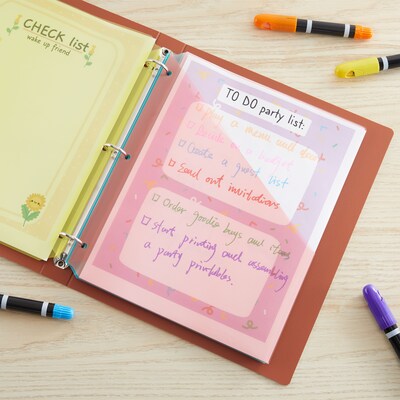 CHECK list
wake up friend
TO DO party list:
□ Plan a menu and
□ Create a guest list
□ Send out invitations
□ Order goodie bags and items
□ Start printing and assembling
a party printables.